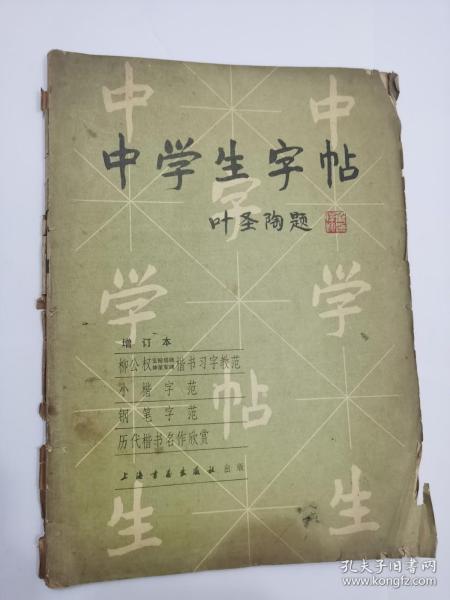 中学生字帖
叶圣陶题
中 字 中
学 帖 学
生 生
增订本
柳公权玄秘塔碑神策军碑楷书习字教范
小楷字范
钢笔字范
历代楷书名作欣赏
上海书画出版社 出版
孔夫子旧书网
www.kongfz.com